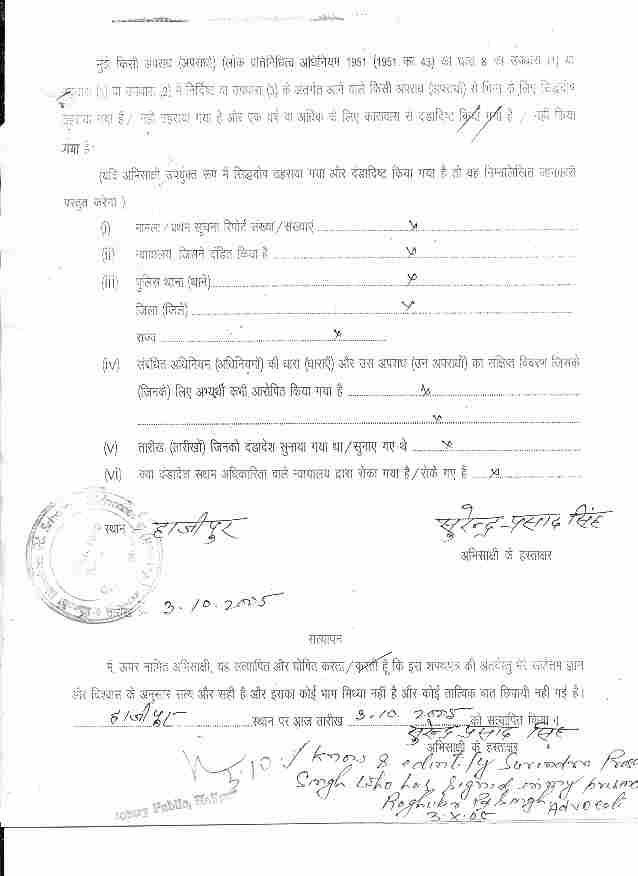 मुझे किसी अपराध (अपराधों) (लोक प्रतिनिधित्व अधिनियम 1951 (1951 का 43) की धारा 8 की उपधारा (1) या
(1) या उपधारा (2) में निर्दिष्ट या उपधारा (3) के अंतर्गत आने वाले किसी अपराध (अपराधों) से भिन्न के लिए सिद्धदोष
ठहराया गया है / नहीं ठहराया गया है और एक वर्ष या अधिक के लिए कारावास से दंडादिष्ट किया गया है / नहीं किया
गया है।
(यदि अभिसाक्षी उपर्युक्त रूप में सिद्धदोष ठहराया गया और दंडादिष्ट किया गया है तो वह निम्नलिखित जानकारी
प्रस्तुत करेगा)
(i) मामला / प्रथम सूचना रिपोर्ट संख्या / संख्याएं x
(ii) न्यायालय जिसने दंडित किया है x
(iii) पुलिस थाना (थाने) x
जिला (जिले) x
राज्य x
(iv) संबंधित अधिनियम (अधिनियमों) की धारा (धाराएँ) और उस अपराध (उन अपराधों) का संक्षिप्त विवरण जिसके
(जिनके) लिए अभ्यर्थी को आरोपित किया गया है x
x
(v) तारीख (तारीखों) जिनको दंडादेश सुनाया गया था / सुनाए गए थे x
(vi) क्या दंडादेश सक्षम अधिकारिता वाले न्यायालय द्वारा रोका गया है / रोके गए हैं x
स्थान - हाजीपुर
सुरेन्द्र प्रसाद सिंह
अभिसाक्षी के हस्ताक्षर
तारीख 3.10.2005
सत्यापन
मैं, ऊपर नामित अभिसाक्षी, यह सत्यापित और घोषित करता / करती हूँ कि इस शपथपत्र की अंतर्वस्तु मेरे सर्वोत्तम ज्ञान
और विश्वास के अनुसार सत्य और सही है और इसका कोई भाग मिथ्या नहीं है और कोई तात्विक बात छिपायी नहीं गई है।
हाजीपुर स्थान पर आज तारीख 3.10.2005 को सत्यापित किया।
सुरेन्द्र प्रसाद सिंह
अभिसाक्षी के हस्ताक्षर
I know & edintify Surendra
Singh who has signed in my
Singh Advocate
3.X.05
Public,